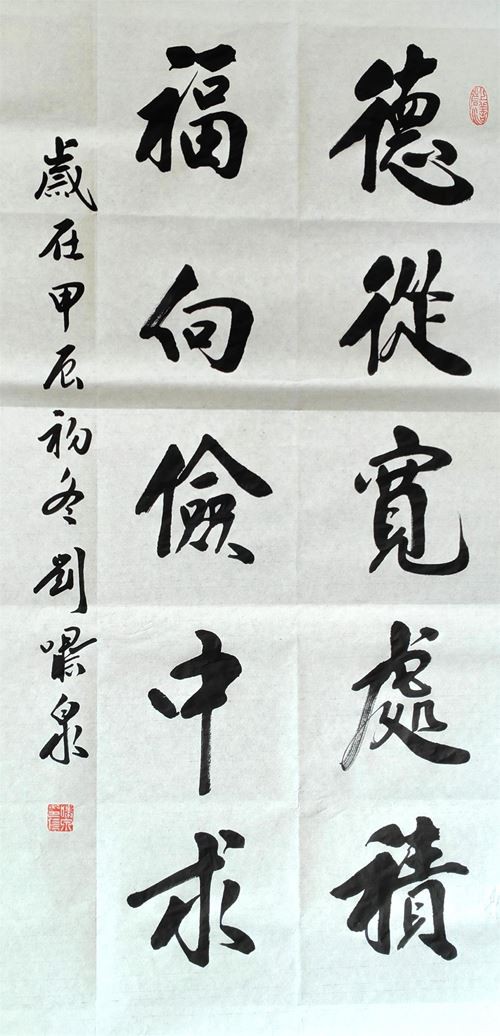 德從寬處積
福向儉中求
歲在甲辰初冬劉噗泉